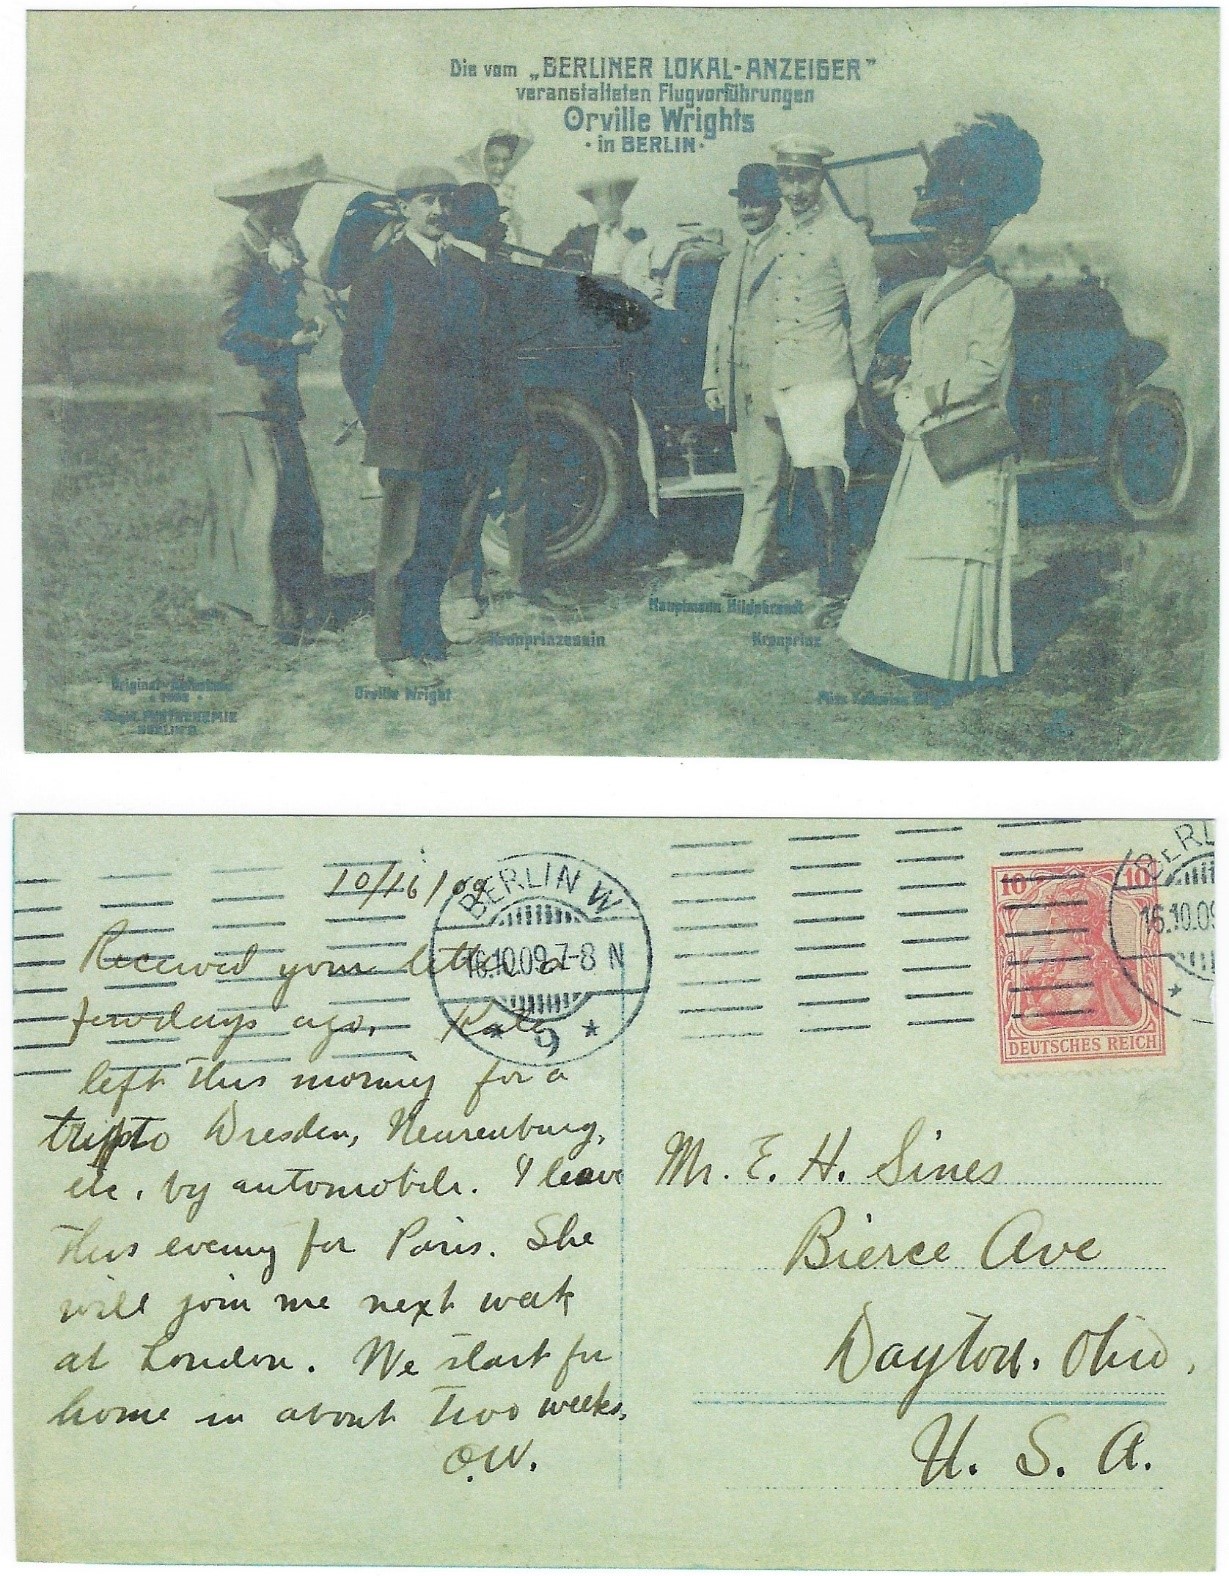 Die vom „BERLINER LOKAL-ANZEIGER”
veranstalteten Flugvorführungen
Orville Wrights
· in BERLIN ·
Hauptmann Hildebrandt
Kronprinzessin
Kronprinz
Orville Wright
Miss Katherine Wright
Original-Aufnahme
BERLIN
10/16/09
BERLIN W
16.10.09.7-8 N
* 9 *
BERL
16.10.09
*
10 10
DEUTSCHES REICH
Received your letter a
few days ago. Kate
left this morning for a
trip to Dresden, Neurenburg,
etc. by automobile. I leave
this evening for Paris. She
will join me next week
at London. We start for
home in about two weeks.
O.W.
Mr. E. H. Sines
Bierce Ave
Dayton. Ohio,
U. S. A.